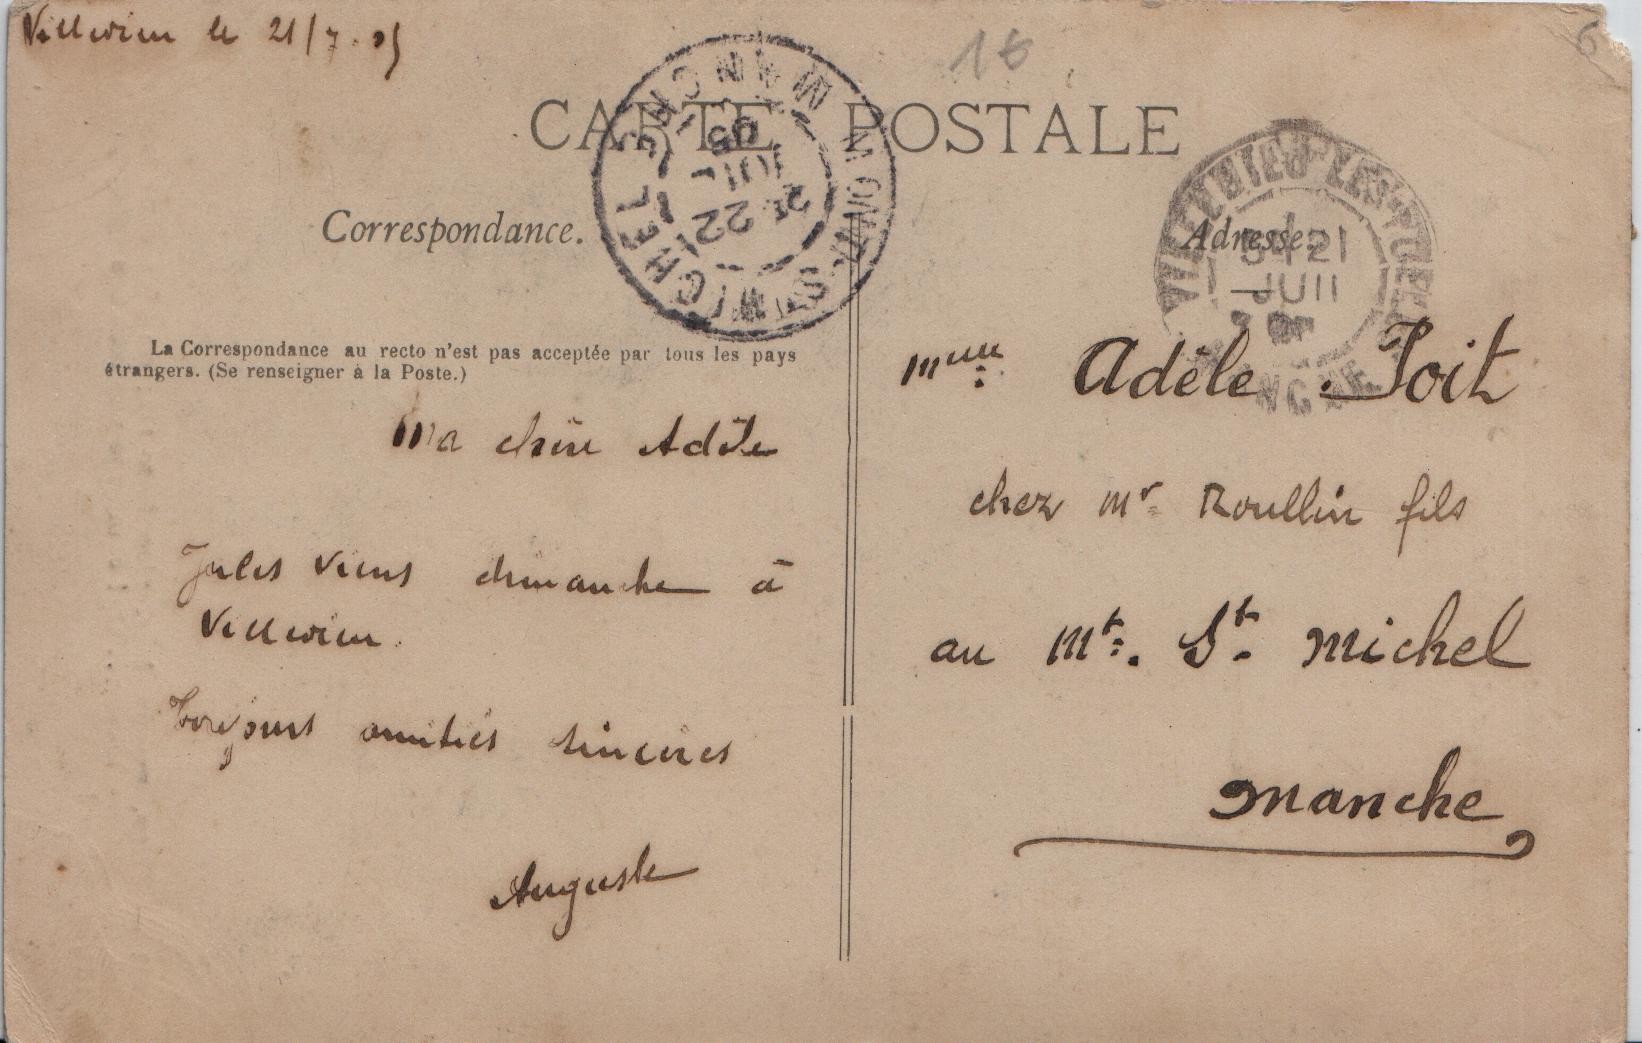 Villedieu le 21/7.05
16
6
CARTE POSTALE
MONT-ST-MICHEL MANCHE
22
JUIL
05
VILLEDIEU-LES-POELES
21
JUIL
MANCHE
Correspondance.
Adresse.
La Correspondance au recto n'est pas acceptée par tous les pays
étrangers. (Se renseigner à la Poste.)
Ma chère Adèle
Jules viens dimanche à
Villedieu.
Toujours amitiés sincères
Auguste
Adèle
chez Mr Roullin fils
au Mt. St. Michel
Manche